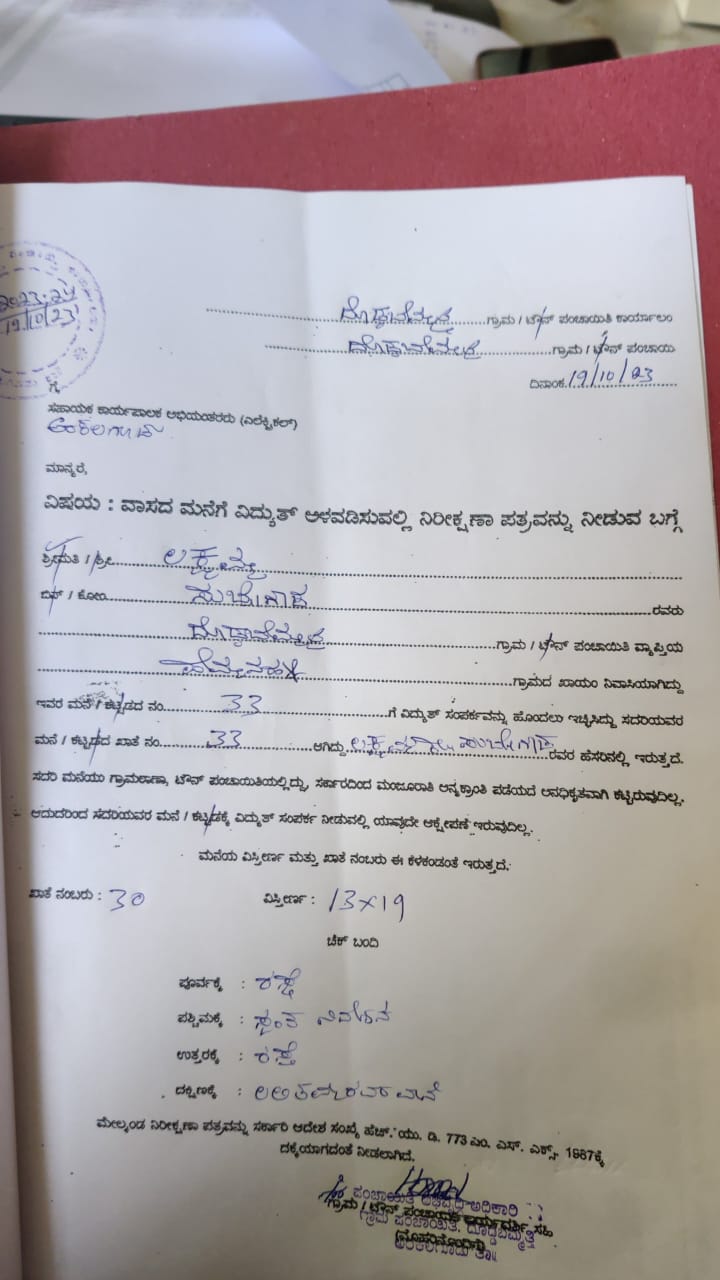 2023-24
19/10/23
ದೊಡ್ಡಬೆಮ್ಮತ್ತಿ ಗ್ರಾಮ / ಟೌನ್ ಪಂಚಾಯಿತಿ ಕಾರ್ಯಾಲಯ
ದೊಡ್ಡಬೆಮ್ಮತ್ತಿ ಗ್ರಾಮ / ಟೌನ್ ಪಂಚಾಯಿ
ದಿನಾಂಕ 19/10/23
ಗೆ,
ಸಹಾಯಕ ಕಾರ್ಯಪಾಲಕ ಅಭಿಯಂತರರು (ಎಲೆಕ್ಟ್ರಿಕಲ್)
ಅರಕಲಗೂಡು
ಮಾನ್ಯರೆ,
ವಿಷಯ : ವಾಸದ ಮನೆಗೆ ವಿದ್ಯುತ್ ಅಳವಡಿಸುವಲ್ಲಿ ನಿರೀಕ್ಷಣಾ ಪತ್ರವನ್ನು ನೀಡುವ ಬಗ್ಗೆ
ಶ್ರೀಮತಿ / ಶ್ರೀ. ಲಕ್ಷ್ಮಮ್ಮ
ಬಿನ್ / ಕೋಂ ರವರು
ದೊಡ್ಡಬೆಮ್ಮತ್ತಿ ಗ್ರಾಮ / ಟೌನ್ ಪಂಚಾಯಿತಿ ವ್ಯಾಪ್ತಿಯ
ಗ್ರಾಮದ ಖಾಯಂ ನಿವಾಸಿಯಾಗಿದ್ದು
ಇವರ ಮನೆ / ಕಟ್ಟಡದ ನಂ. 33 ಗೆ ವಿದ್ಯುತ್ ಸಂಪರ್ಕವನ್ನು ಹೊಂದಲು ಇಚ್ಛಿಸಿದ್ದು ಸದರಿಯವರ
ಮನೆ / ಕಟ್ಟಡದ ಖಾತೆ ನಂ. 33 ಆಗಿದ್ದು ರವರ ಹೆಸರಿನಲ್ಲಿ ಇರುತ್ತದೆ.
ಸದರಿ ಮನೆಯು ಗ್ರಾಮಠಾಣಾ, ಟೌನ್ ಪಂಚಾಯಿತಿಯಲ್ಲಿದ್ದು, ಸರ್ಕಾರದಿಂದ ಮಂಜೂರಾತಿ ಅನ್ಯಕ್ರಾಂತಿ ಪಡೆಯದೆ ಅನಧಿಕೃತವಾಗಿ ಕಟ್ಟಿರುವುದಿಲ್ಲ.
ಆದುದರಿಂದ ಸದರಿಯವರ ಮನೆ / ಕಟ್ಟಡಕ್ಕೆ ವಿದ್ಯುತ್ ಸಂಪರ್ಕ ನೀಡುವಲ್ಲಿ ಯಾವುದೇ ಆಕ್ಷೇಪಣೆ ಇರುವುದಿಲ್ಲ.
ಮನೆಯ ವಿಸ್ತೀರ್ಣ ಮತ್ತು ಖಾತೆ ನಂಬರು ಈ ಕೆಳಕಂಡಂತೆ ಇರುತ್ತದೆ.
ಖಾತೆ ನಂಬರು : 30 ವಿಸ್ತೀರ್ಣ : 13×19
ಚೆಕ್ ಬಂದಿ
ಪೂರ್ವಕ್ಕೆ : ರಸ್ತೆ
ಪಶ್ಚಿಮಕ್ಕೆ : ಸ್ವಂತ ನಿವೇಶನ
ಉತ್ತರಕ್ಕೆ : ರಸ್ತೆ
ದಕ್ಷಿಣಕ್ಕೆ : ಲಲಿತಮ್ಮರವರ ಮನೆ
ಮೇಲ್ಕಂಡ ನಿರೀಕ್ಷಣಾ ಪತ್ರವನ್ನು ಸರ್ಕಾರಿ ಆದೇಶ ಸಂಖ್ಯೆ ಹೆಚ್. ಯು. ಡಿ. 773 ಎಂ. ಎಸ್. ಎಕ್ಸ್. 1987ಕ್ಕೆ
ದಕ್ಕೆಯಾಗದಂತೆ ನೀಡಲಾಗಿದೆ.
ಪಂಚಾಯಿತಿ ಅಭಿವೃದ್ಧಿ ಅಧಿಕಾರಿ
ಗ್ರಾಮ / ಟೌನ್ ಪಂಚಾಯಿತಿ ಕಾರ್ಯದರ್ಶಿ ಸಹಿ
ಗ್ರಾಮ ಪಂಚಾಯಿತಿ, ದೊಡ್ಡಬೆಮ್ಮತ್ತಿ
(ಮೊಹರಿನೊಂದಿಗೆ)
ಅರಕಲಗೂಡು ತಾ||